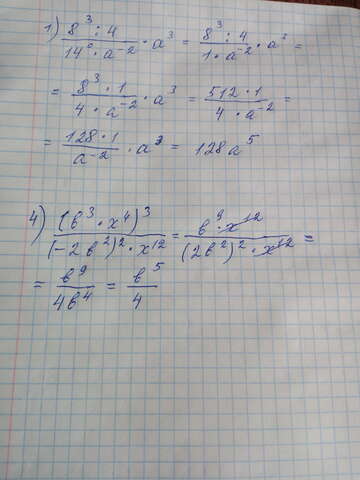 1) (8³ : 4)/(14⁰ · a⁻²) · a³ = (8³ : 4)/(1 · a⁻²) · a³ =
= (8³ · 1)/(4 · a⁻²) · a³ = (512 · 1)/(4 · a⁻²) =
= (128 · 1)/(a⁻²) · a³ = 128a⁵
4) ((в³ · x⁴)³)/((-2в²)² · x¹²) = (в⁹ · x¹²)/((2в²)² · x¹²) =
= в⁹/4в⁴ = в⁵/4